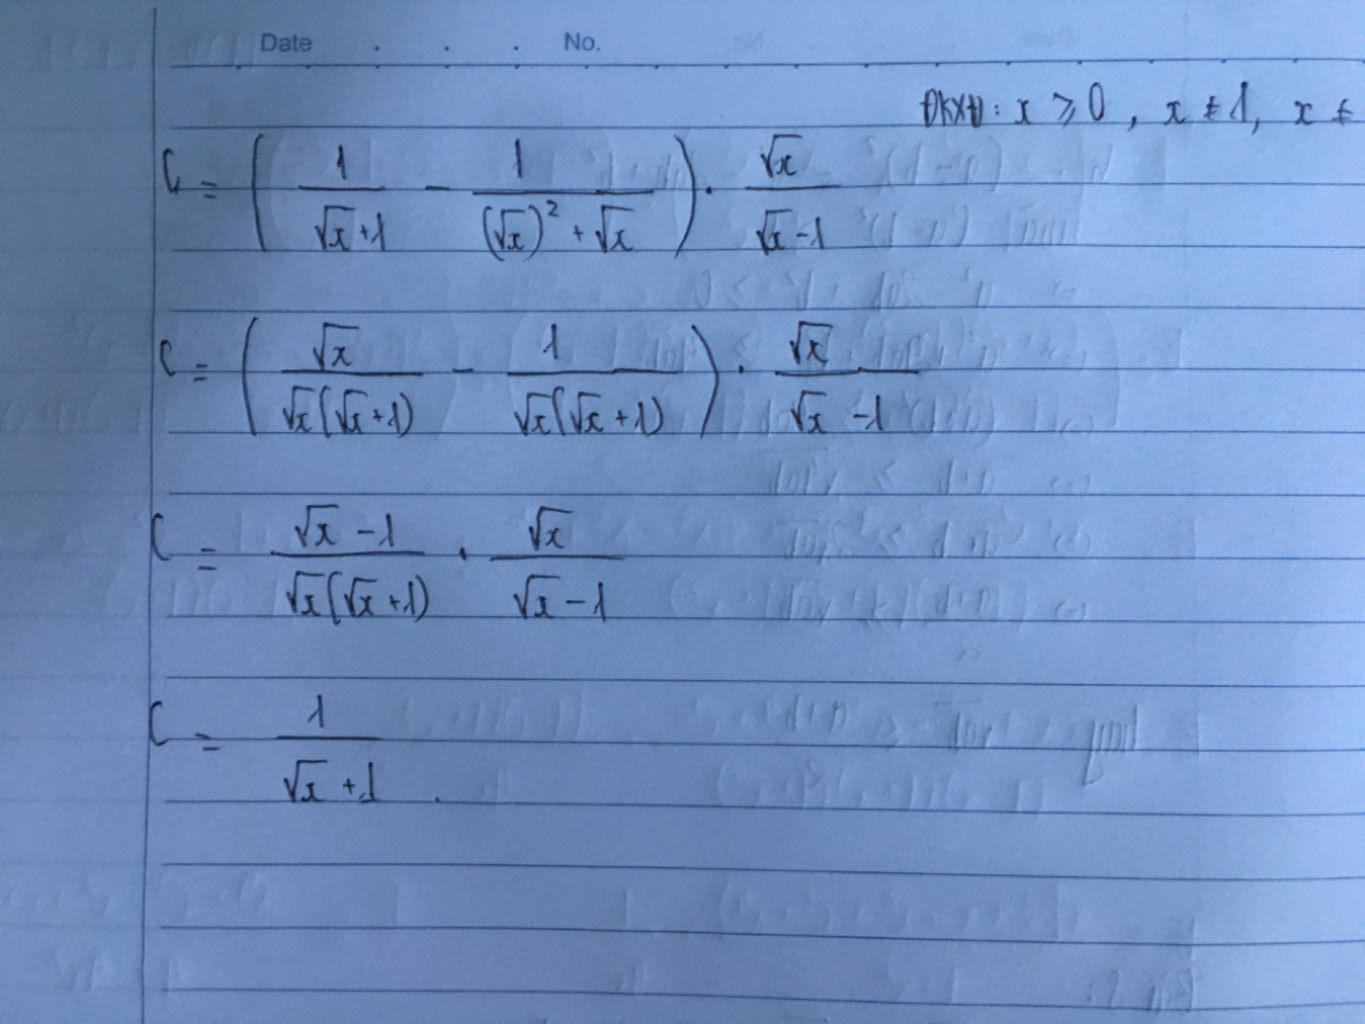 Date . . . No.
ĐKXĐ: x ⩾ 0, x ≠ 1, x ≠
C = ( 1/(√x+1) - 1/((√x)² + √x) ) · √x/(√x-1)
C = ( √x/(√x(√x+1)) - 1/(√x(√x+1)) ) · √x/(√x-1)
C = (√x-1)/(√x(√x+1)) · √x/(√x-1)
C = 1/(√x+1) .